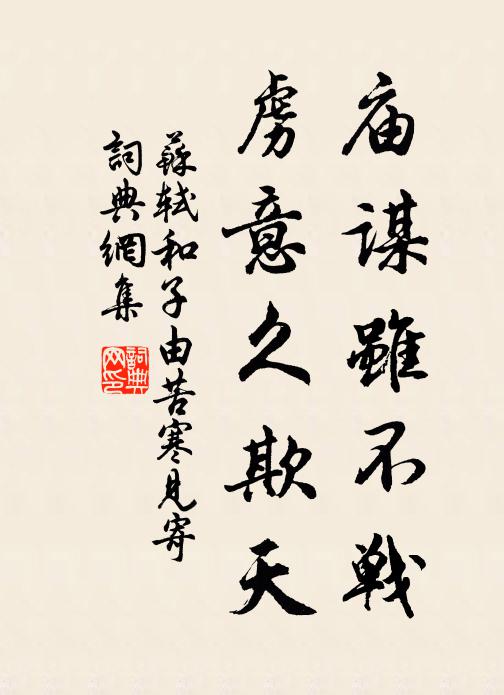 庙谋雖不戦
虏意久欺天
蘇轼和子由苦寒見寄
詞典網集
詞典网印